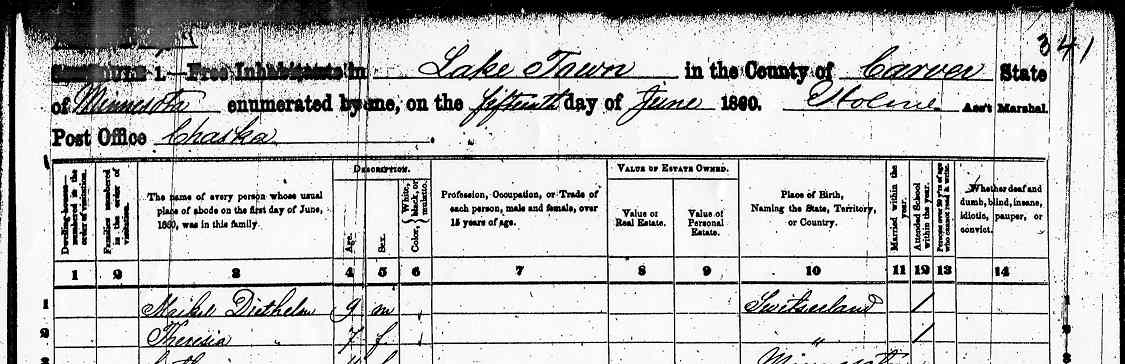 341
SCHEDULE 1.—Free Inhabitants in Lake Town in the County of Carver State
of Minnesota enumerated by me, on the fifteenth day of June 1860. Ass't Marshal.
Post Office Chaska
DESCRIPTION.
VALUE OF ESTATE OWNED.
Dwelling-houses—numbered in the order of visitation.
Families numbered in the order of visitation.
The name of every person whose usual
place of abode on the first day of June,
1860, was in this family.
Age.
Sex.
Color, White, black, or mulatto.
Profession, Occupation, or Trade of
each person, male and female, over
15 years of age.
Value of
Real Estate.
Value of
Personal
Estate.
Place of Birth,
Naming the State, Territory,
or Country.
Married within the year.
Attended School within the year.
Persons over 20 y'rs of age who cannot read & write.
Whether deaf and
dumb, blind, insane,
idiotic, pauper, or
convict.
1 2 3 4 5 6 7 8 9 10 11 12 13 14
1 Maikel Diethelm 9 m Switserland / 1
2 Theresia 7 f " / 2
3 Minnesota 3